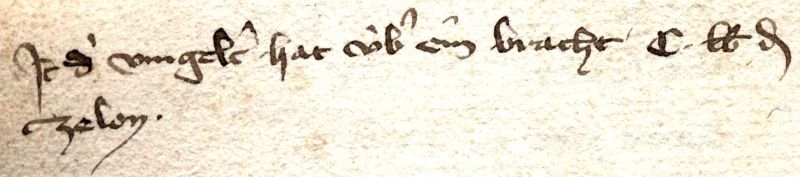 It d' vmgelt' hat vb' em bracht C lb d
zelon.